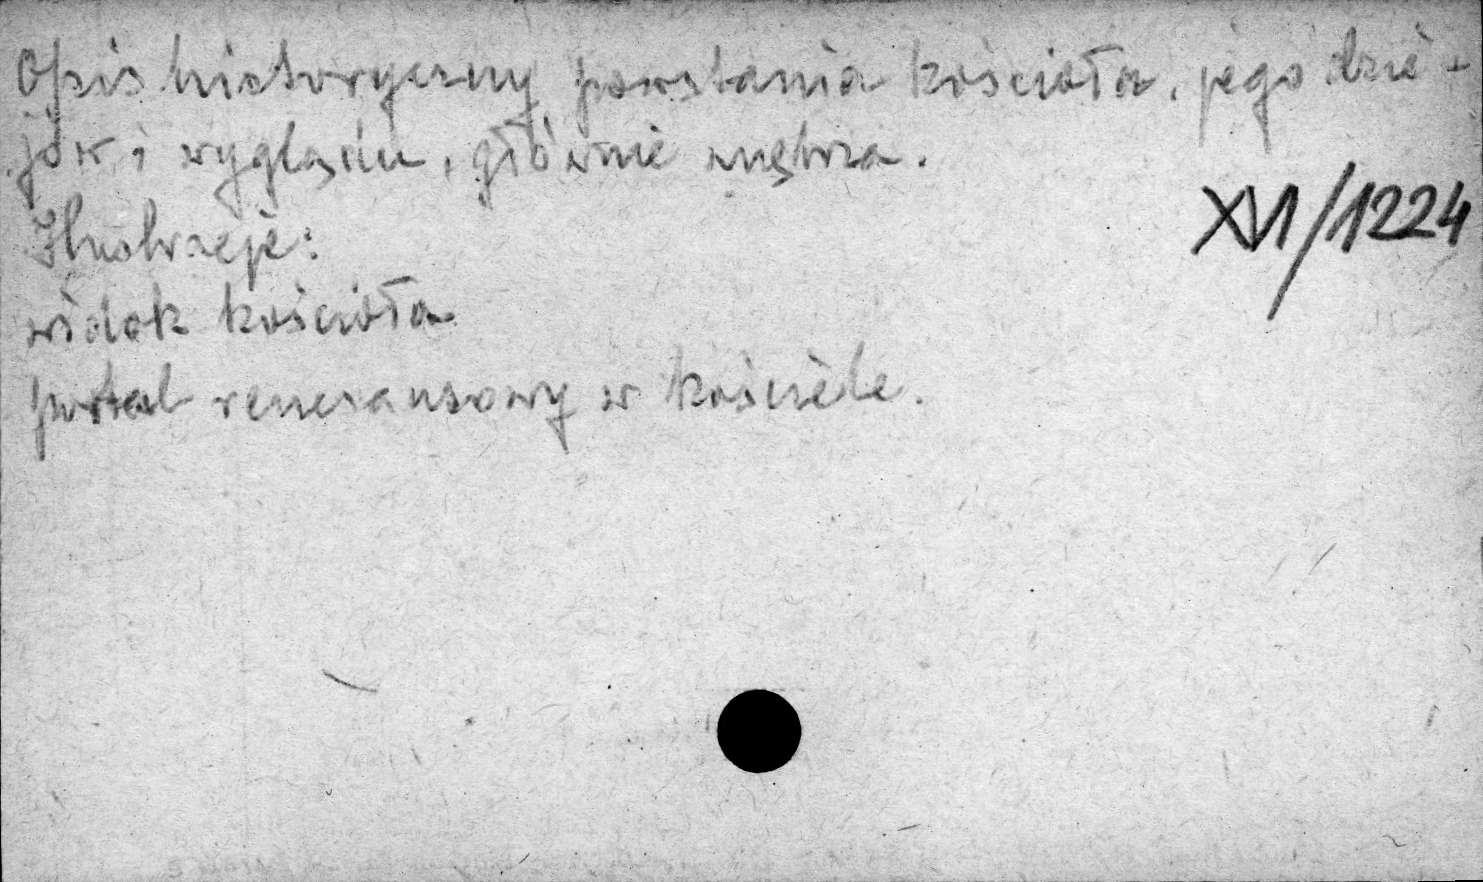 Opis historyczny powstania kościoła, jego dzie-
jów i wyglądu, głównie wnętrza.
XVI/1224
Ilustracje:
widok kościoła
portal renesansowy w kościele.